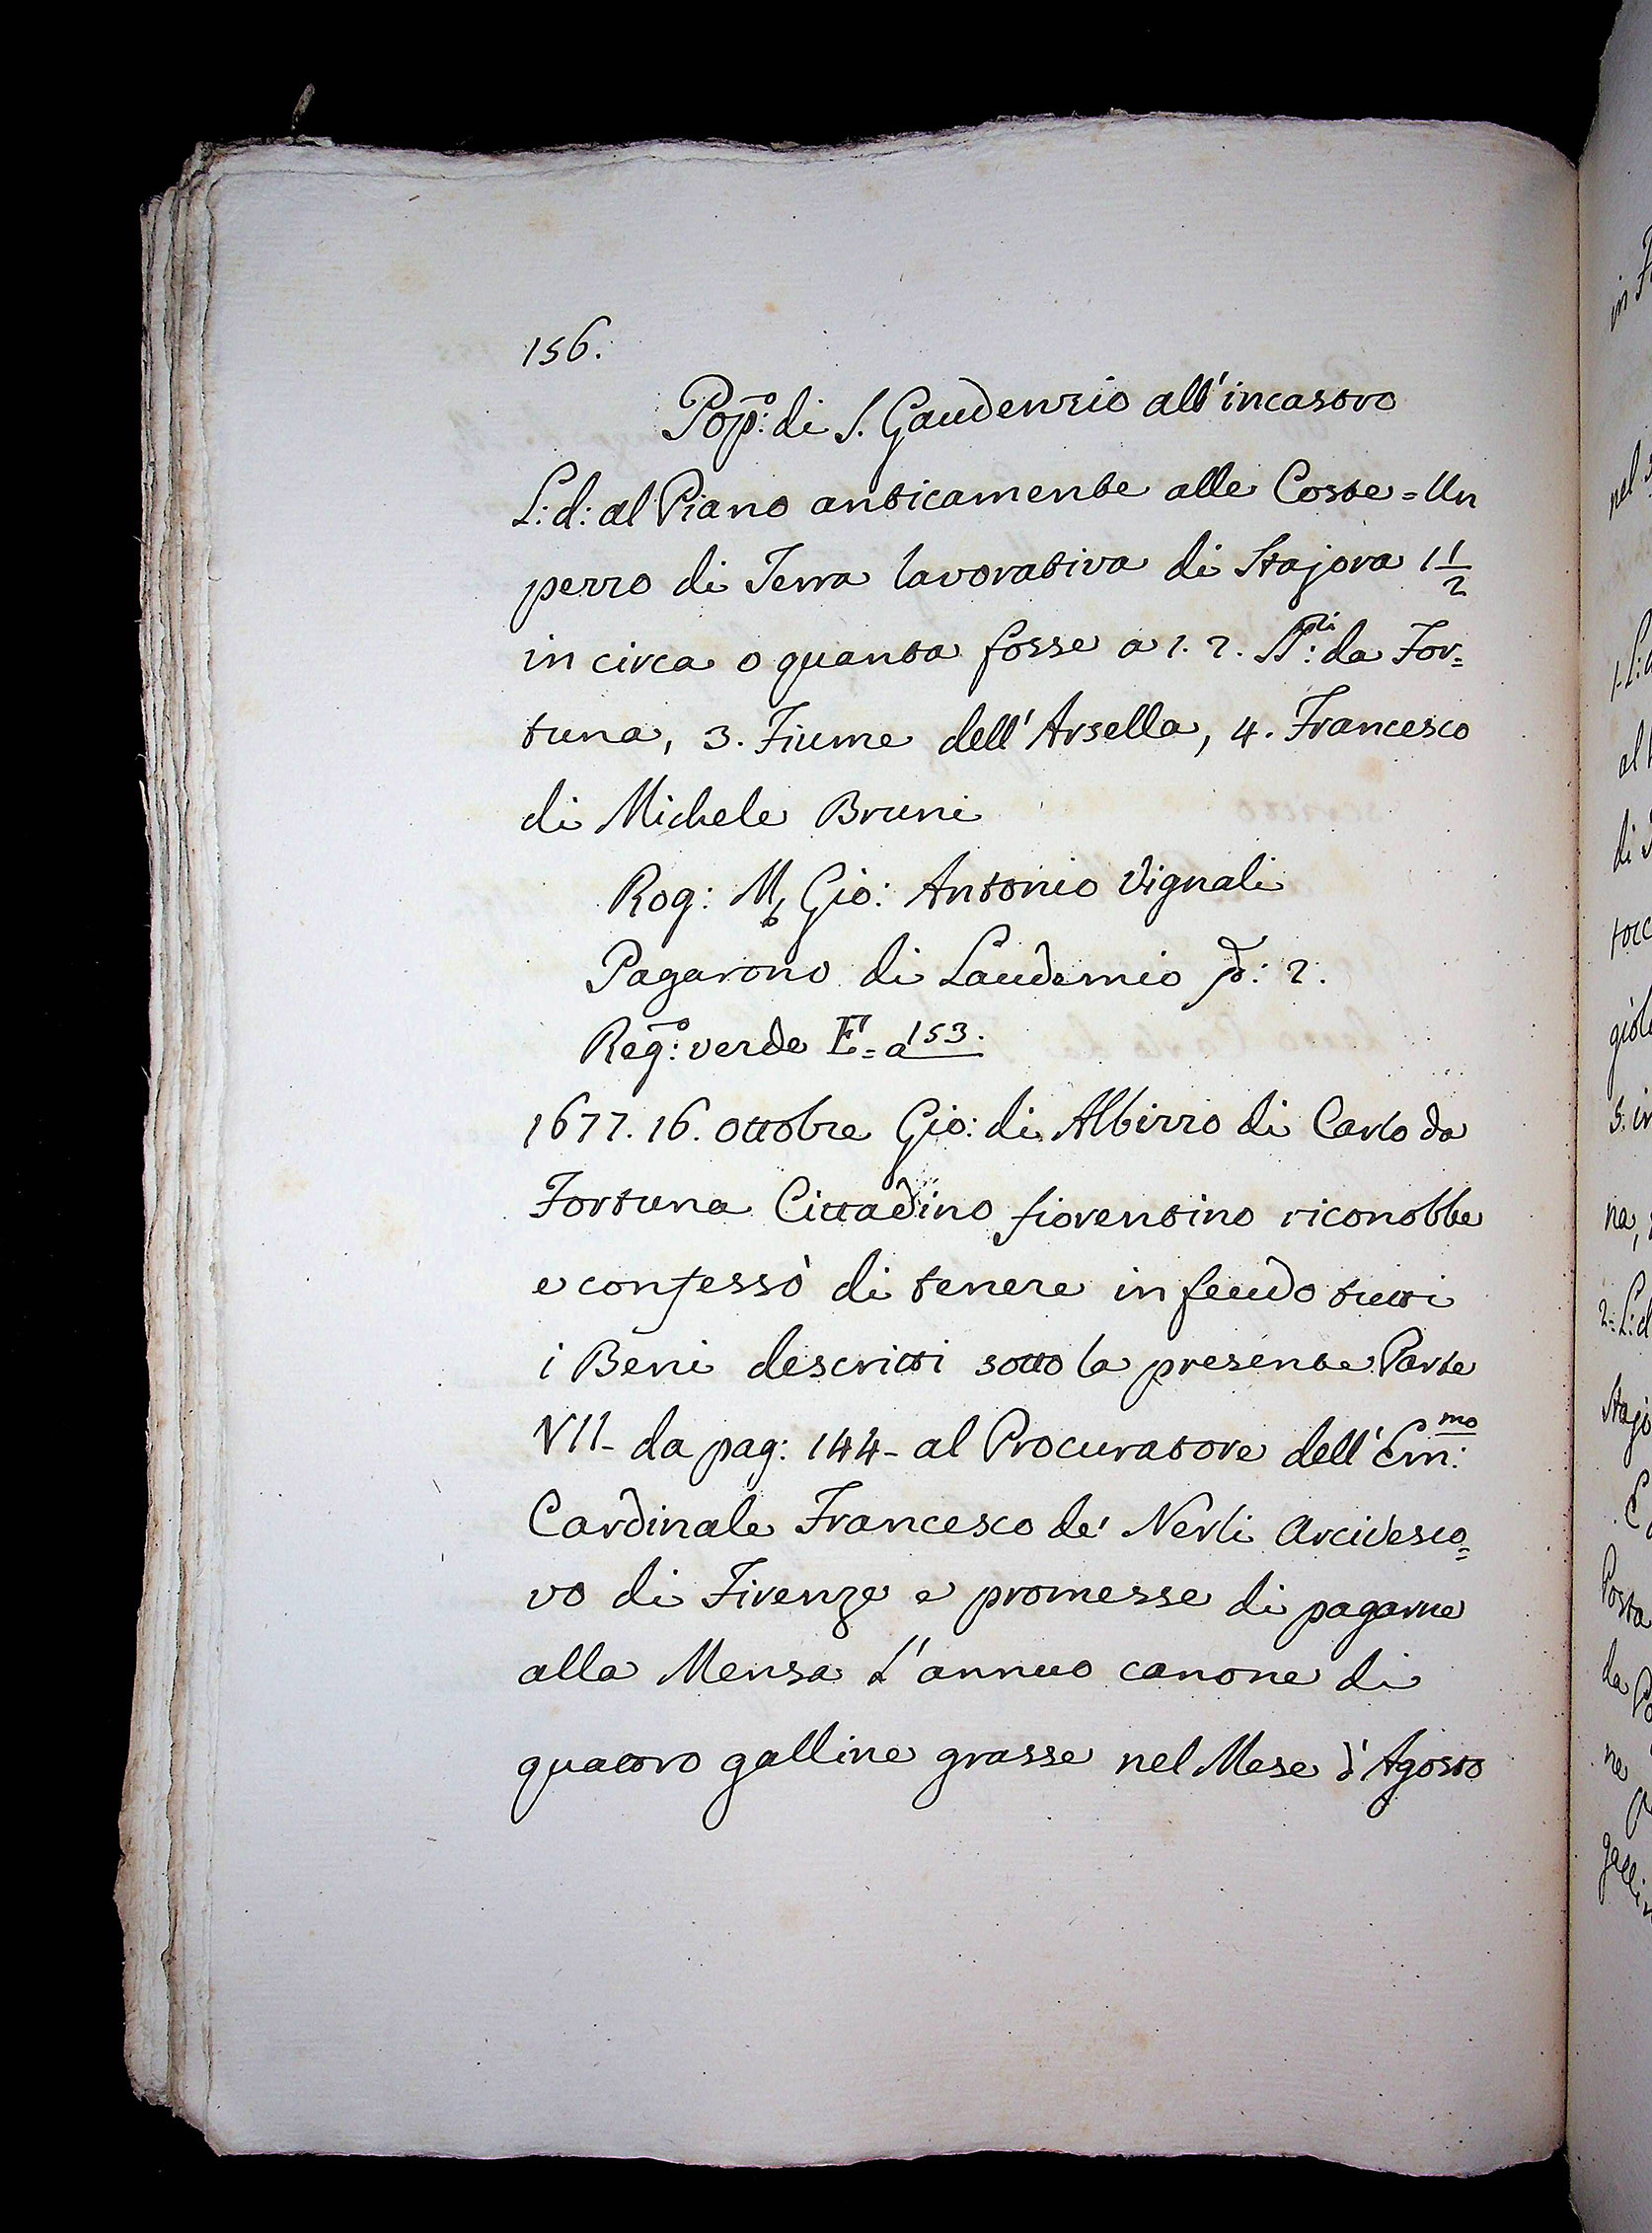 156.
Pop:º di S. Gaudenzio all'incastro
L: d: al Piano anticamente alle Coste = Un
pezzo di Terra lavorativa di Stajora 1 1/2
in circa o quanta fosse a 1. 2. da For=
tuna, 3. Fiume dell'Arsella, 4. Francesco
di Michele Bruni
Rog: Gio: Antonio Vignali
Pagarono di Laudemio 2.
Reg:º verde E = a 153.
1677. 16. ottobre Gio: di Albizzo di Carlo da
Fortuna Cittadino fiorentino riconobbe
e confessò di tenere in feudo tutti
i Beni descritti sotto la presente Parte
VII - da pag: 144 - al Procuratore dell'Em:mo
Cardinale Francesco de' Nerli Arcivesco=
vo di Firenze e promesse di pagarne
alla Mensa l'annuo canone di
quattro galline grasse nel Mese d'Agosto